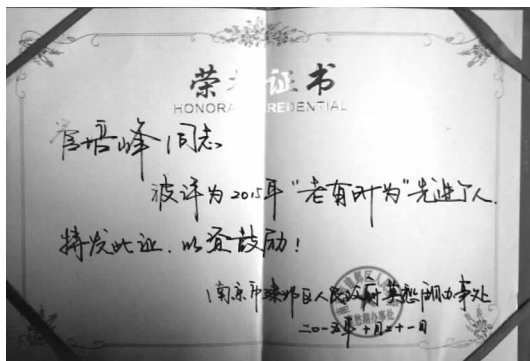 荣誉证书
HONORARY CREDENTIAL
培峰同志
被评为2015年“老有所为”先进个人.
特发此证.以资鼓励!
南京市 区人民政府莫愁湖办事处
二〇一五年十月二十一日